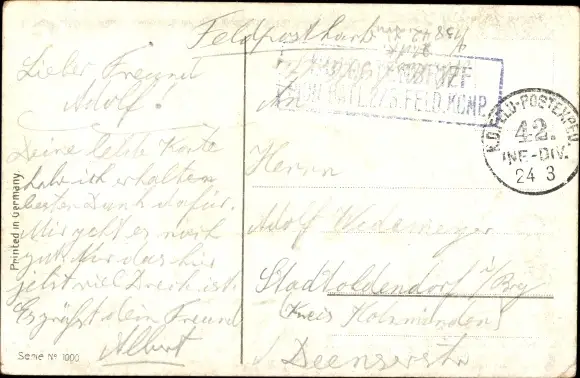 Feldpostkarte
Lieber Freund
Adolf!
Deine letzte Karte
hab ich erhalten
besten Dank dafür.
Mir geht es noch
gut. Nur das hier
jetzt viel Dreck ist.
Es grüßt dein Freund
Albert
Printed in Germany.
Serie No 1000
An
Herrn
Adolf Wedemeyer
Stadtoldendorf i/Brg
(Kreis Holzminden)
Deenserstr
K.D.FELD-POSTEXPED
42.
INF-DIV.
24 3